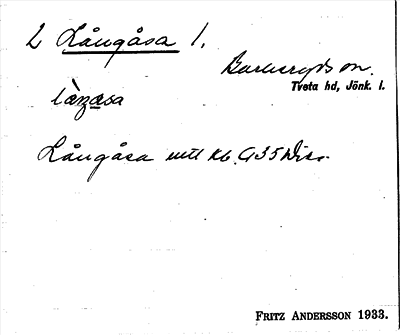 2 Långåsa 1.
Barkeryds sn.
Tveta hd, Jönk. l.
làŋasa
Långåsa mtl Kb. G35
FRITZ ANDERSSON 1933.